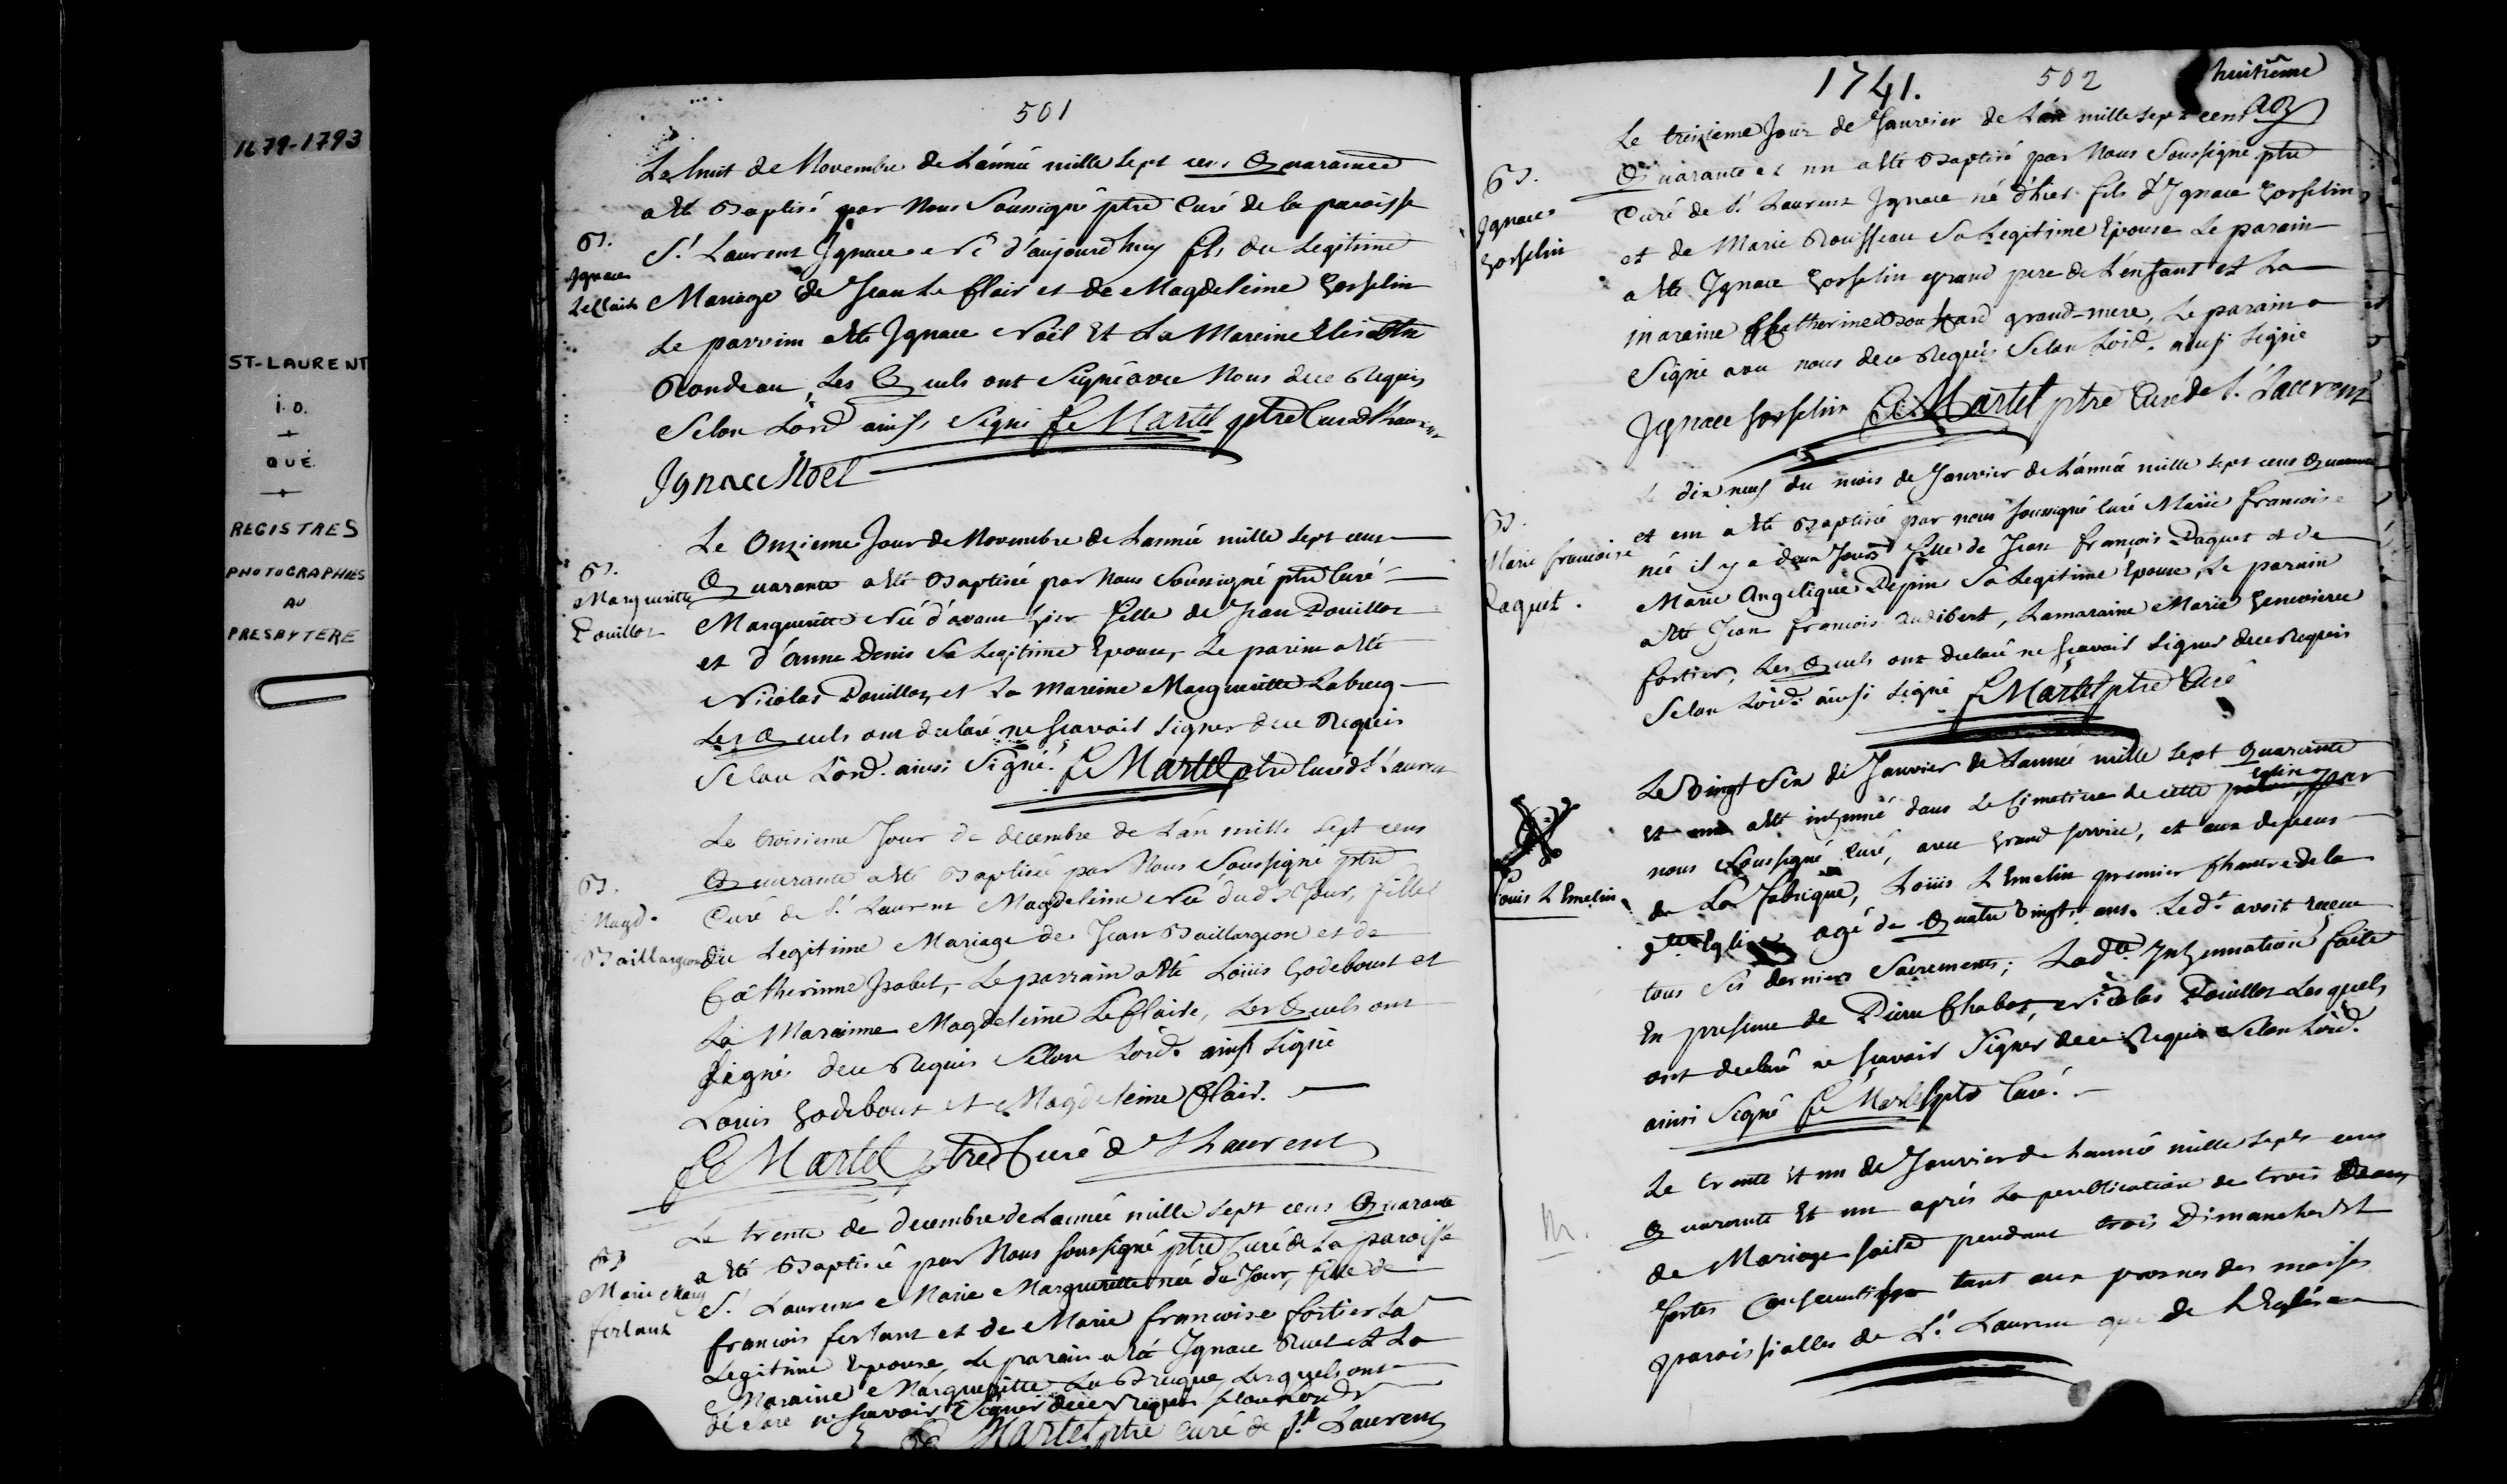 1679-1793
ST-LAURENT
i.o.
QUÉ.
REGISTRES
PHOTOGRAPHIÉS
AU
PRESBYTERE
501
Le huit de Novembre de L'année mille Sept cens Quarante
a Eté Baptisé par Nous Soussigné ptre Curé de la paroisse
B.
Ignace
LeClair
St Laurent Ignace Né d'aujourd'huy fils du Legitime
Mariage de Jean Le Clair et de Magdeleine Gosselin
Le parrein a Eté Ignace Noël Et La Mareine Elisabeth
Rondeau, Les Quels ont Signé avec Nous de ce Requis
Selon L'ord ainsi Signé fr Martel ptre Curé d St Laurent
Ignace Noël
Le Onzieme Jour de Novembre de L'année mille Sept cens
B.
Margueritte
Pouillot
Quarante a Eté Baptisée par Nous Soussigné ptre Curé
Margueritte Née d'avant hier fille de Jean Pouillot
et d'Anne Denis Sa Legitime Epouse, Le parein a Eté
Nicolas Pouillot, et La Mareine Margueritte Labrecq
Les Quels ont declaré ne scavoir Signer de ce Requis
Selon L'ord. ainsi Signé. fr Martel ptre Curé d St Laurent
Le troisieme Jour de decembre de L'an mille Sept cens
B.
Magd.
Baillargeon
Quarante a Eté Baptisée par Nous Soussigné ptre
Curé de St Laurent Magdeleine Née dud. Jour, fille
du Legitime Mariage de Jean Baillargeon et de
Catherinne Isabel, Le parrain a Eté Loüis Godeboust et
La Marainne Magdeleine LeClaire, Les Quels ont
Signé de ce Requis Selon L'ord. ainsi Signé
Louis Godebout et Magdeleine Clair.
fr Martel ptre Curé d St Laurent
Le trente de decembre de L'année mille Sept cens Quarante
B
Marie Marg
ferlant
a Eté Baptisée par Nous Soussigné ptre Curé de La paroisse
St Laurent Marie Margueritte née du Jour, fille de
francois ferlant et de Marie francoise fortier Sa
Legitime Epouse, Le parain a Eté Ignace Ruel et La
Maraine Margueritte La Breque Lesquels ont
déclaré ne scavoir Signer de ce Requis Selon L'ord
fr Martel ptre curé de St Laurent
1741.
502
huitième
Le treizieme Jour de Janvier de L'an mille Sept cens
B.
Ignace
Gosselin
Quarante et un a Eté Baptisé par Nous Soussigné ptre
Curé de St Laurent Ignace né d'hier fils d'Ignace Gosselin
et de Marie Rousseau Sa Legitime Epouse Le parain
a Eté Ignace Gosselin grand pere de L'enfant et La
maraine Catherine grand-mere, Le parain a
Signé avec nous de ce Requis Selon L'ord. ainsi Signé
Ignace Gosselin fr Martel ptre Curé de St Laurent
Le dix neuf du mois de Janvier de L'année mille Sept cens Quarante
B.
Marie francoise
Paquet.
et un a Eté Baptisée par nous soussigné Curé Marie francoise
née il y a deux Jours fille de Jean François Paquet et de
Marie Angelique Depin Sa Legitime Epouse, Le parain
a Eté Jean francois Audibert, La maraine Marie Genevieve
fortier, Les Quels ont declaré ne scavoir Signer de ce Requis
Selon L'ord. ainsi signé fr Martel ptre Curé
Le Vingt Six de Janvier de L'année mille Sept Quarante
Louis L Emelin
Et un a Eté inhumé dans Le Cimetiere de cette eglise par
nous Soussigné Curé, avec Grand service, et aux depens
de La fabrique, Loüis L Emelin premier Chantre de la
dte Eglise agé de Quatre Vingts ans. Ledt avoit receu
tous Ses derniers Sacrements; Ladte Inhumation faite
En presence de Pierre Chabot, Nicolas Pouillot Lesquels
ont declaré ne scavoir Signer de ce Requis Selon L'ord.
ainsi Signé fr Martel ptre Curé.
Le trente Et un de Janvier de L'année mille Sept cens
M.
Quarante Et un aprés La publication de trois Bans
de Mariage faite pendant trois Dimanches Et
fetes Consecutifs tant aux prosnes des messes
paroissialles de St Laurent que de L'Eglise